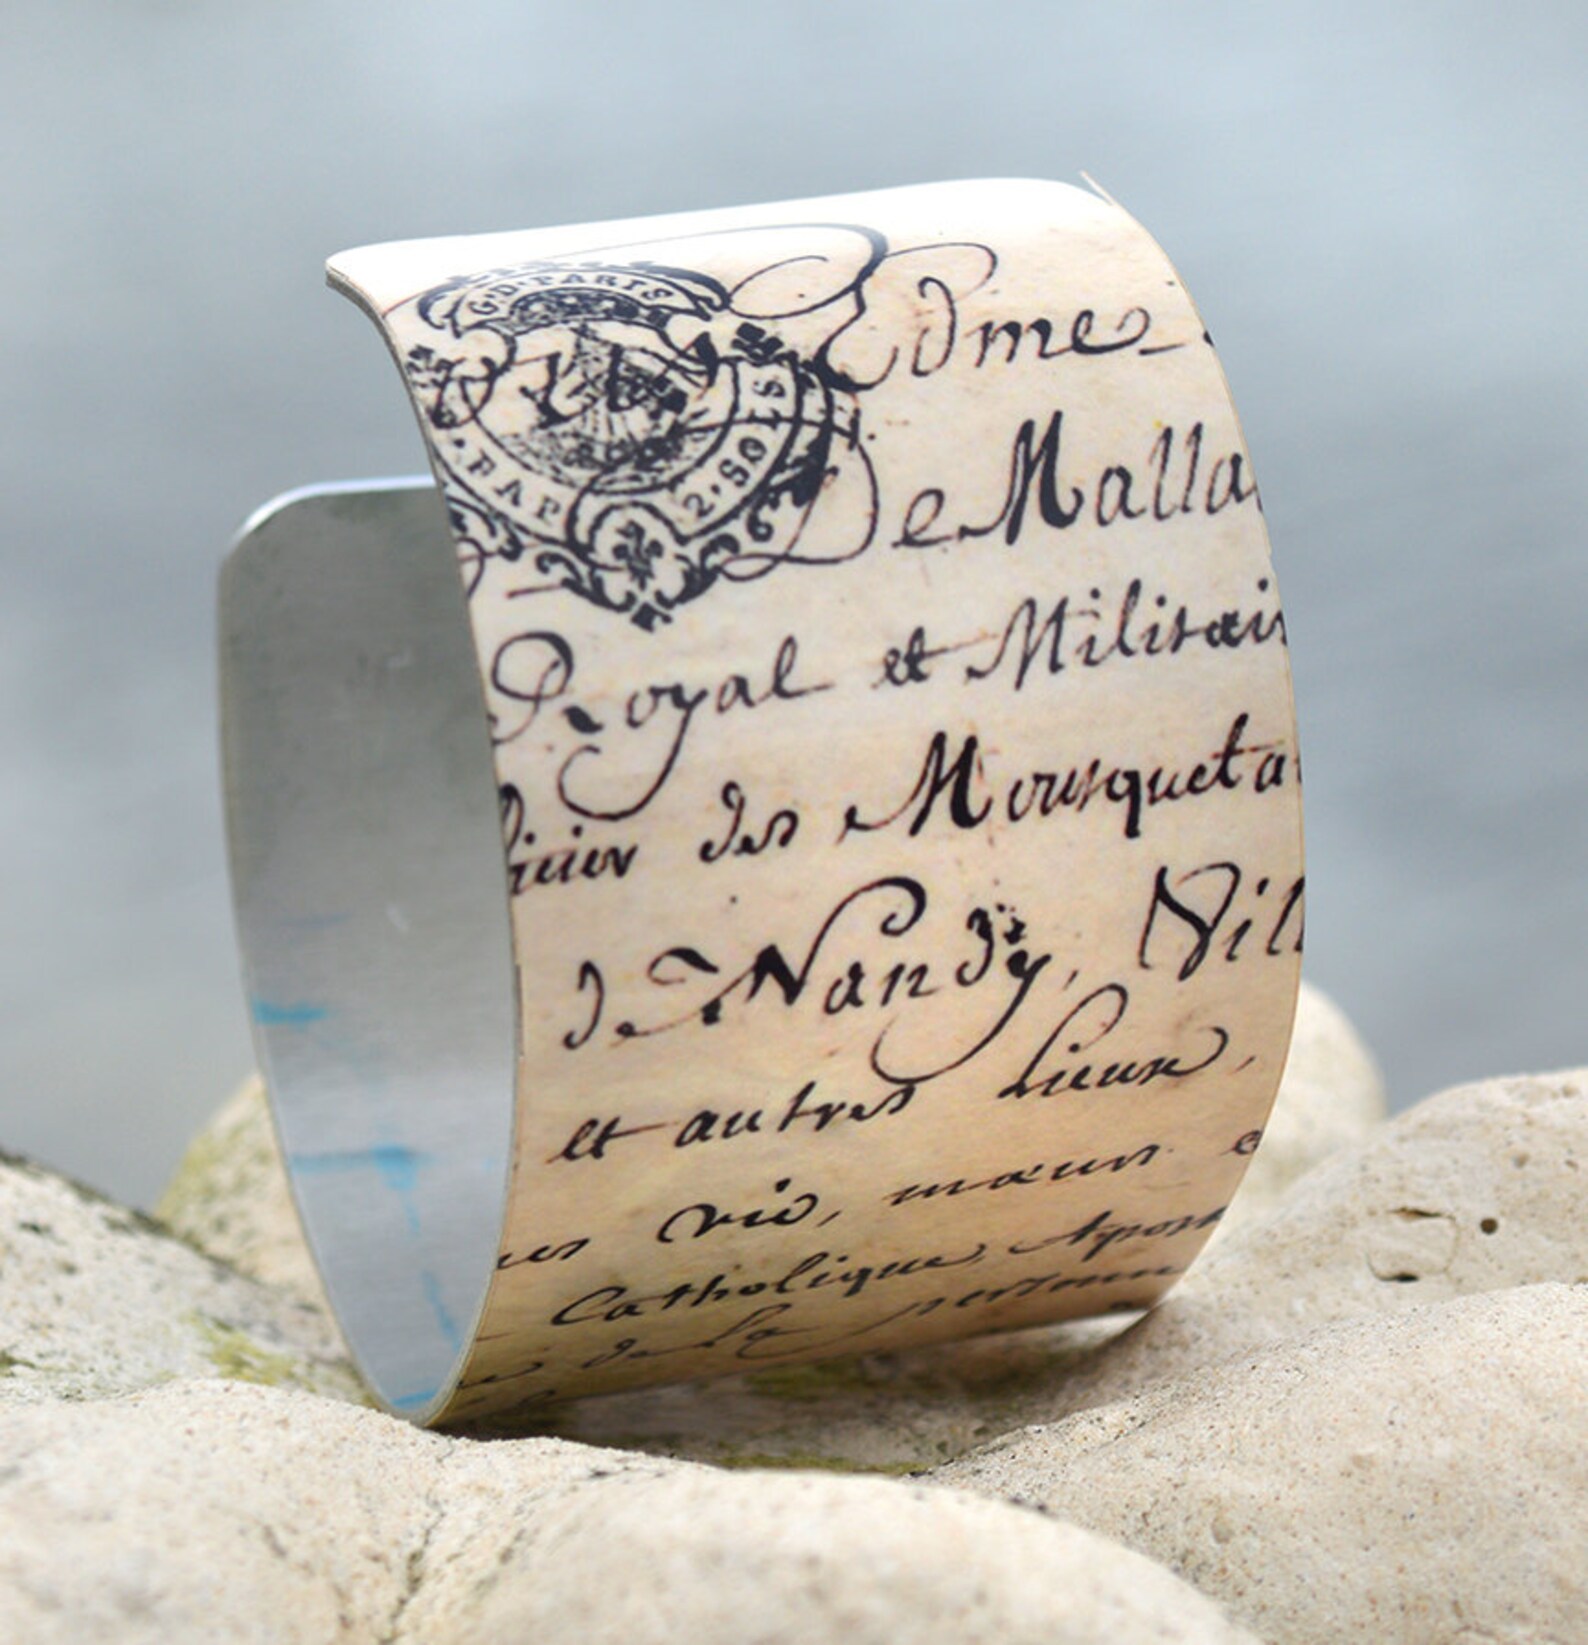 G.D. PARIS
.PAP
2.SOLS
Edme
De Malla
Royal et Militair
ficier des Mousqueta
de Nandy, Vill
et autres Lieux,
vie, mœurs
Catholique, Apost
de la personne